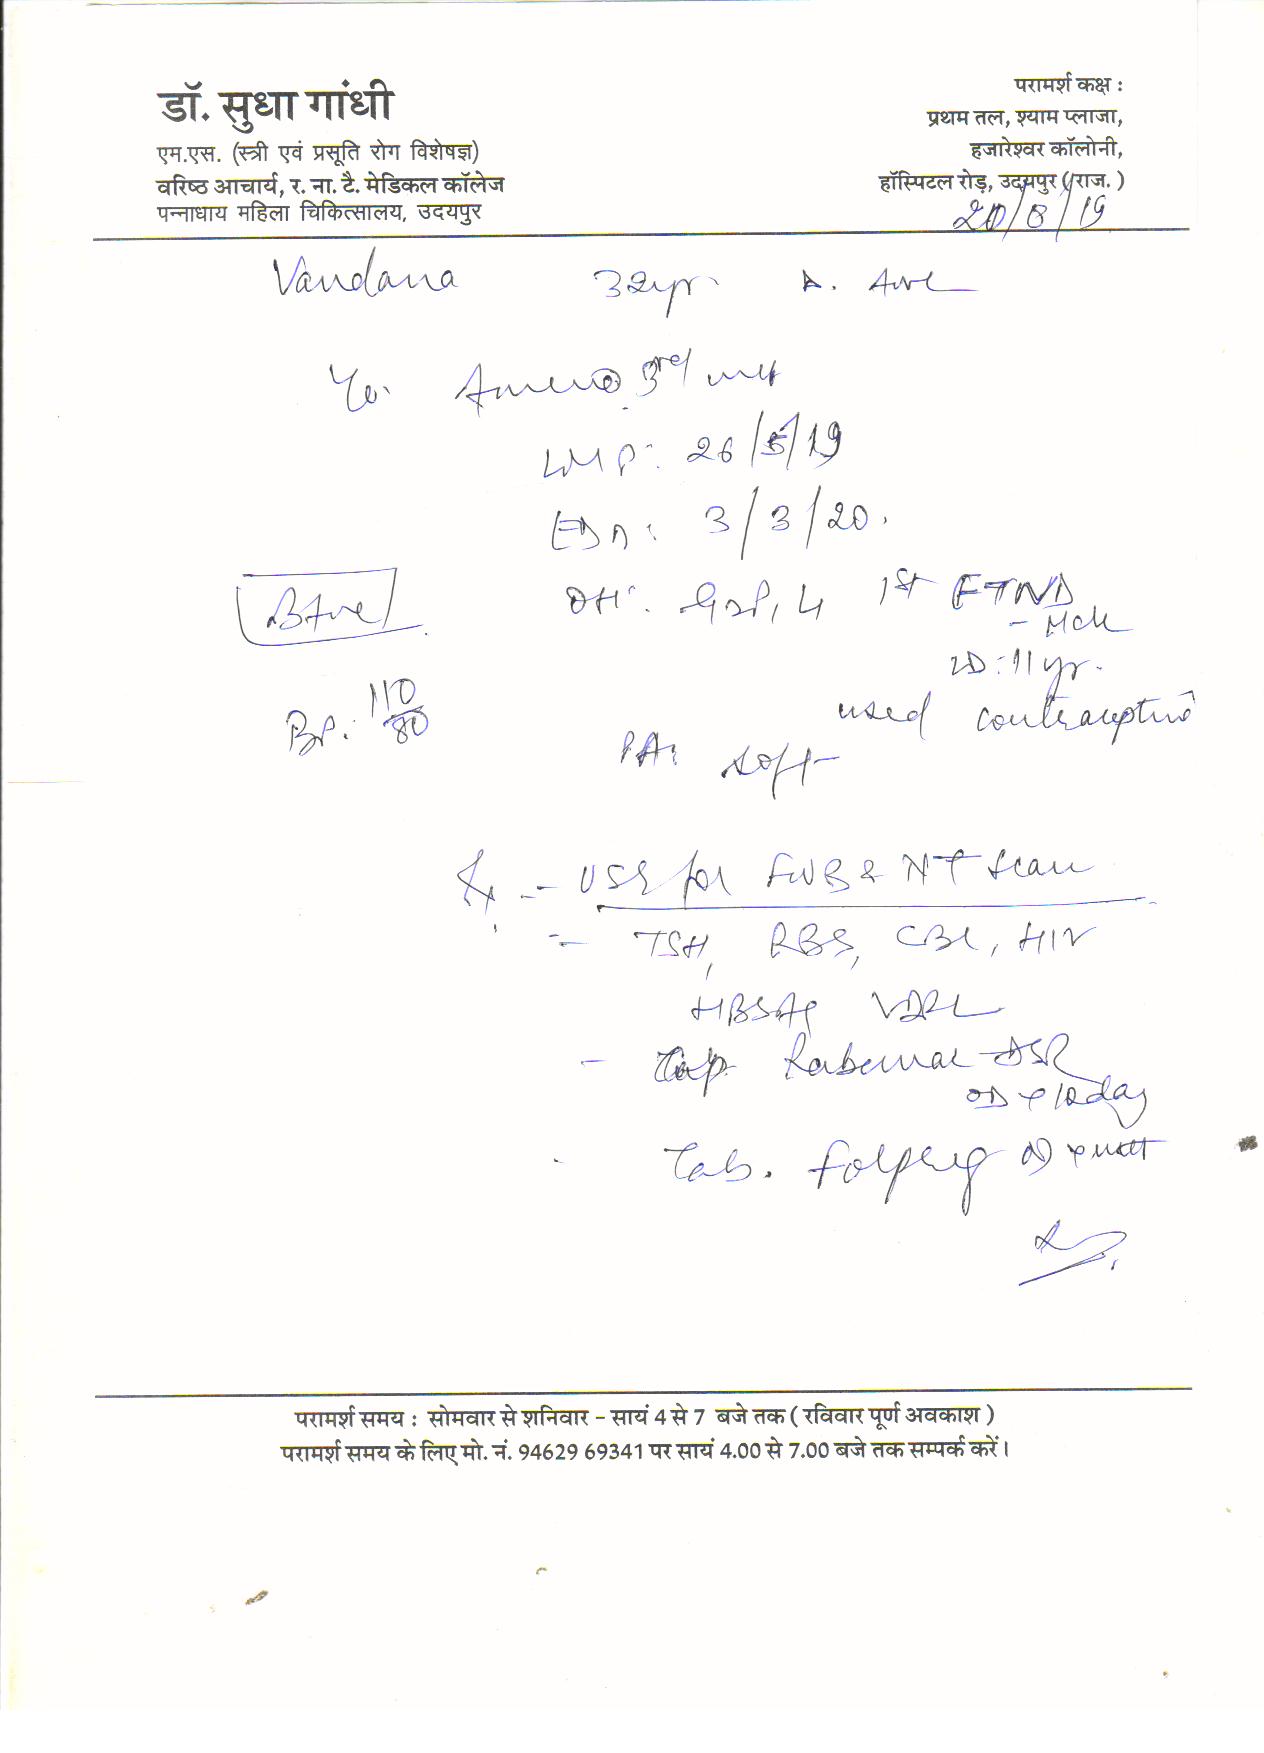 डॉ. सुधा गांधी
एम.एस. (स्त्री एवं प्रसूति रोग विशेषज्ञ)
वरिष्ठ आचार्य, र. ना. टै. मेडिकल कॉलेज
पन्नाधाय महिला चिकित्सालय, उदयपुर
परामर्श कक्ष :
प्रथम तल, श्याम प्लाजा,
हजारेश्वर कॉलोनी,
हॉस्पिटल रोड़, उदयपुर (राज. )
20/8/19
Vandana 32yr
3rd
LMP: 26/5/19
EDD: 3/3/20.
OH: G2P1L1 1st FTND
- Mch
LD: 11 yr.
used contraceptive
B+ve
BP: 110/80
PA: soft
Rx - USG for FWB & NT scan
- TSH, RBS, CBC, HIV
HBSAg VDRL
- Cap DSR
OD x 10 day
- Tab. OD x
परामर्श समय : सोमवार से शनिवार - सायं 4 से 7 बजे तक ( रविवार पूर्ण अवकाश )
परामर्श समय के लिए मो. नं. 94629 69341 पर सायं 4.00 से 7.00 बजे तक सम्पर्क करें।